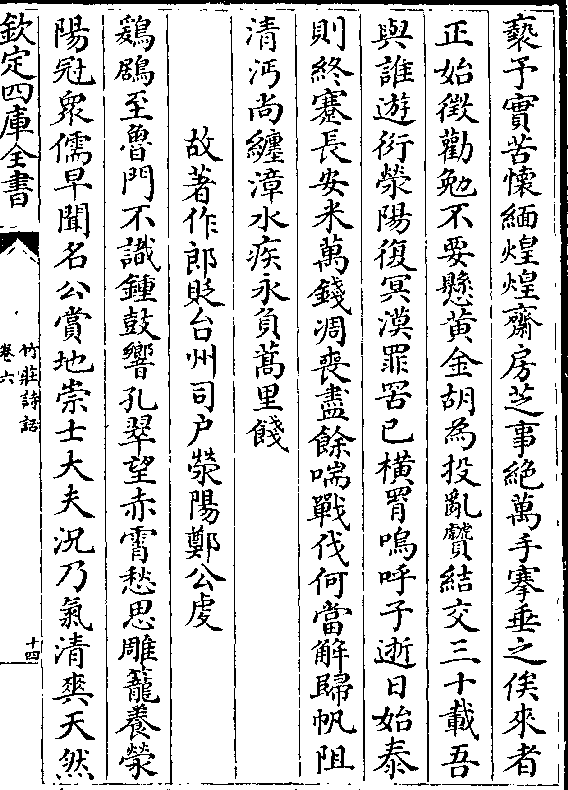 藝予實苦懷緬煌煌齋房芝事絕萬手搴垂之俟來者
正始徴勸勉不要懸黄金胡為投亂贙結交三十載吾
與誰遊衍滎陽復冥漠罪罟已横罥嗚呼子逝日始泰
則終蹇長安米萬錢凋喪盡餘喘戰伐何當解歸帆阻
清沔尚纒漳水疾永負蒿里餞
故著作郎貶台州司户滎陽鄭公䖍
鷄鶋至魯門不識鍾鼓響孔翠望赤霄愁思雕籠養滎
陽冠衆儒早聞名公賞地崇士大夫況乃氣清爽天然
欽定四庫全書
竹莊詩話
卷六
十四